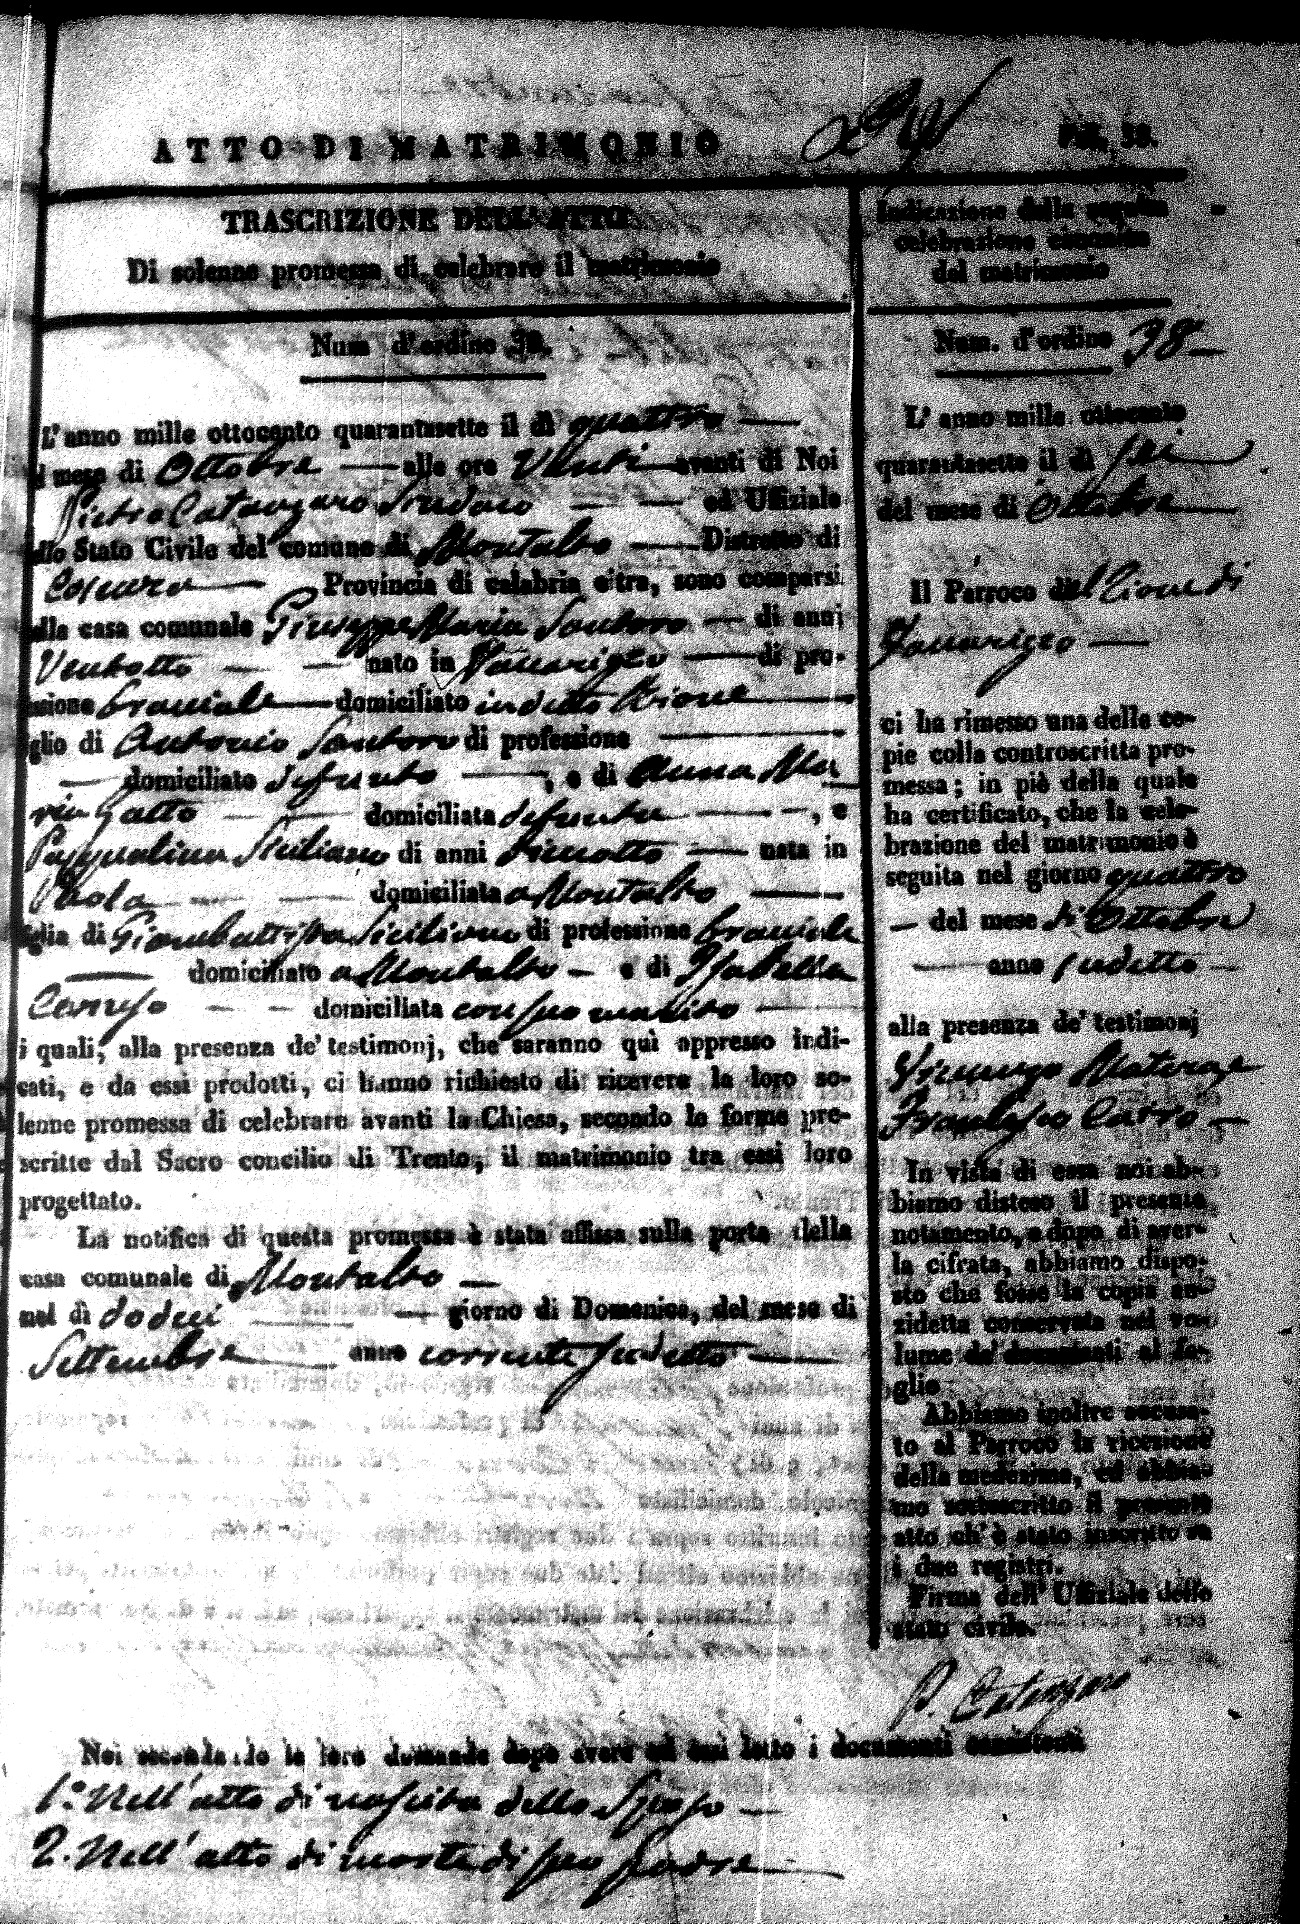 ATTO DI MATRIMONIO
Pag. 38.
TRASCRIZIONE DELL'ATTO
Di solenne promessa di celebrare il matrimonio
Num d'ordine 38.
L'anno mille ottocento quarantasette il dì quattro
mese di Ottobre alle ore Venti avanti di Noi
Pietro Catanzaro Sindaco ed Uffiziale
dello Stato Civile del comune di Montalto Distretto di
Cosenza Provincia di calabria citra, sono comparsi
alla casa comunale Giuseppe Maria Santoro di anni
Ventotto nato in Vaccarizzo di pro-
ssione bracciale domiciliato in detto Rione
glio di Antonio Santoro di professione
domiciliato defunto, e di Anna Ma
ria Gatto domiciliata defunta, e
Pasqualina Siciliano di anni Diciotto nata in
Paola domiciliata a Montalto
iglia di Giambattista Siciliano di professione bracciale
domiciliato a Montalto e di Isabella
domiciliata con suo marito
i quali, alla presenza de' testimonj, che saranno quì appresso indi-
cati, e da essi prodotti, ci hanno richiesto di ricevere la loro so-
lenne promessa di celebrare avanti la Chiesa, secondo le forme pre-
scritte dal Sacro concilio di Trento, il matrimonio tra essi loro
progettato.
La notifica di questa promessa è stata affissa sulla porta della
casa comunale di Montalto
nel dì dodici giorno di Domenica, del mese di
Settembre anno corrente sudetto
Indicazione della seguita
celebrazione canonica
del matrimonio
Num. d'ordine 38
L'anno mille ottocento
quarantasette il dì sei
del mese di Ottobre
Il Parroco del Rione di
Vaccarizzo
ci ha rimesso una delle co-
pie colla controscritta pro-
messa; in piè della quale
ha certificato, che la cele-
brazione del matrimonio è
seguita nel giorno quattro
del mese di Ottobre
anno sudetto
alla presenza de' testimonj
Vincenzo Materaz e
Francesco
In vista di essa noi ab-
biamo disteso il presente
notamento, e dopo di aver-
la cifrata, abbiamo dispo-
sto che fosse la copia an-
zidetta conservata nel vo-
lume de' documenti al fo-
glio
Abbiamo inoltre accusa-
to al Parroco la ricezione
della medesima, ed abbia-
mo sottoscritto il presente
atto ch'è stato inscritto su
i due registri.
Firma dell'Uffiziale dello
stato civile.
P. Catanzaro
Noi secondando le loro domande dopo avere ad essi letto i documenti consistenti
1.° Nell'atto di nascita dello Sposo
2. Nell'atto di morte di suo padre